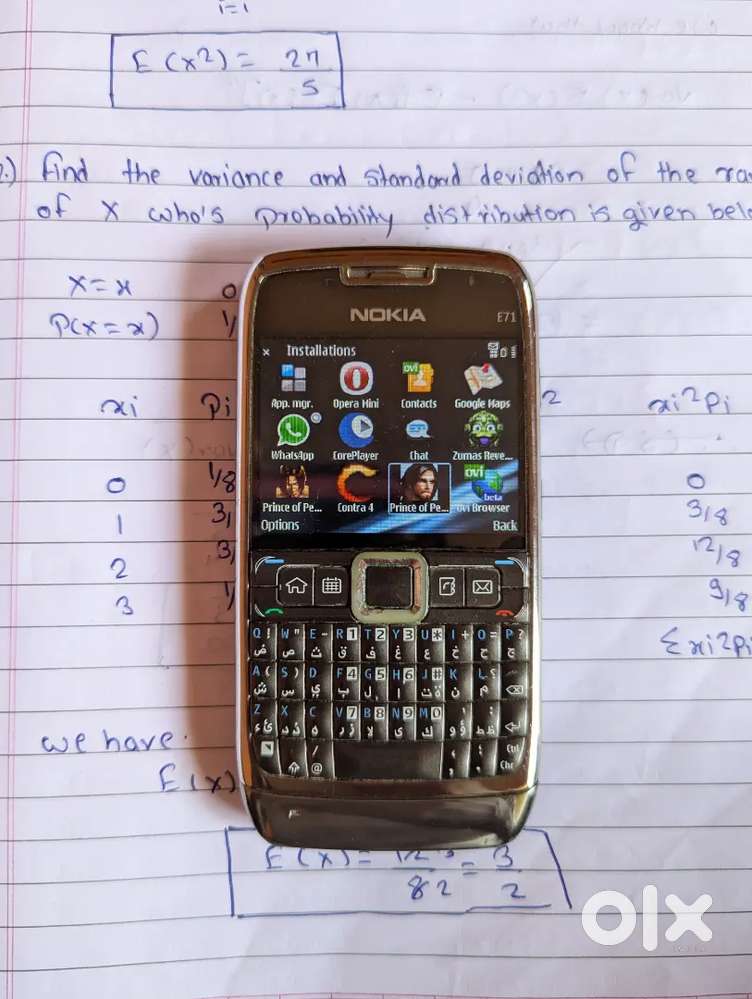 i=1
E(x²) = 27/5
Find the variance and standard deviation of the
of X who's probability distribution is given
X=x 0
P(X=x) 1/
xi Pi 2 xi²Pi
0 1/8 0
1 3/ 3/8
2 3/ 12/8
3 1/ 9/8
Σxi²Pi
we have.
E(X)
E(X) = 12/82 = 3/2
NOKIA
E71
Installations
App. mgr. Opera Mini Contacts Google Maps
WhatsApp CorePlayer Chat Zumas Reve...
Prince of Pe... Contra 4 Prince of Pe... Ovi Browser
ovi
ovi
beta
Options Back
Q ! W " E - R 1 T 2 Y 3 U * I + O = P ?
ض ص ث ق ف غ ع ه خ ح
A ( S ) D F 4 G 5 H 6 J # K L
ش س ي ب ل ا ت ن م
Z X C V 7 B 8 N 9 M 0
/ @ Ctrl
Chr
olx